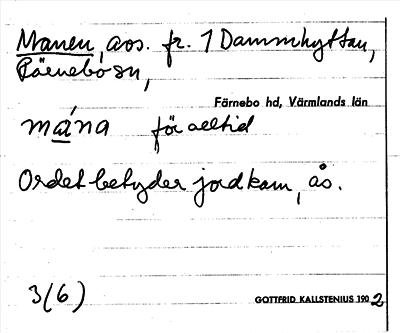 Manen, avs. fr. 1 Dammhyttan,
Färnebo sn,
Färnebo hd, Värmlands län
mána för alltid
Ordet betyder jordkam, ås.
3(6)
GOTTFRID KALLSTENIUS 1902